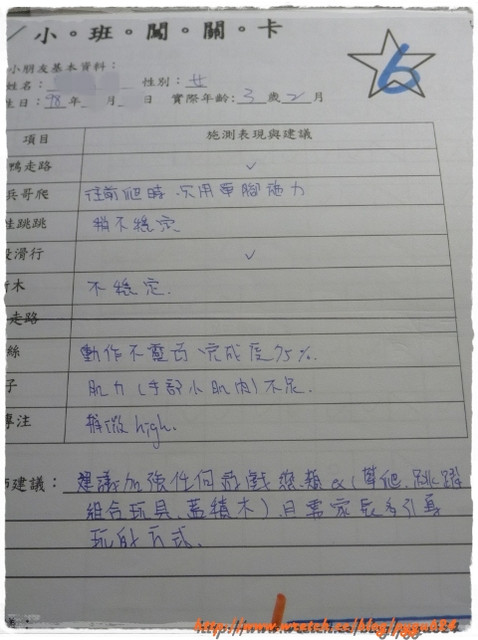 小・班・闖・關・卡
6
小朋友基本資料：
姓名： 性別：女
生日：98年 月 日 實際年齡：3歲2月
項目 施測表現與建議
鴨走路 ✓
兵哥爬 往前爬時、只用單腳施力
跳跳 稍不穩定
滑行 ✓
木 不穩定.
走路
絲 動作不靈活、完成度75%.
子 肌力(手部小肌肉)不足.
專注 稍微high.
建議：建議加強任何遊戲種類ex(攀爬、跳躍
組合玩具、蓋積木)且需家長多引導
玩的方式.